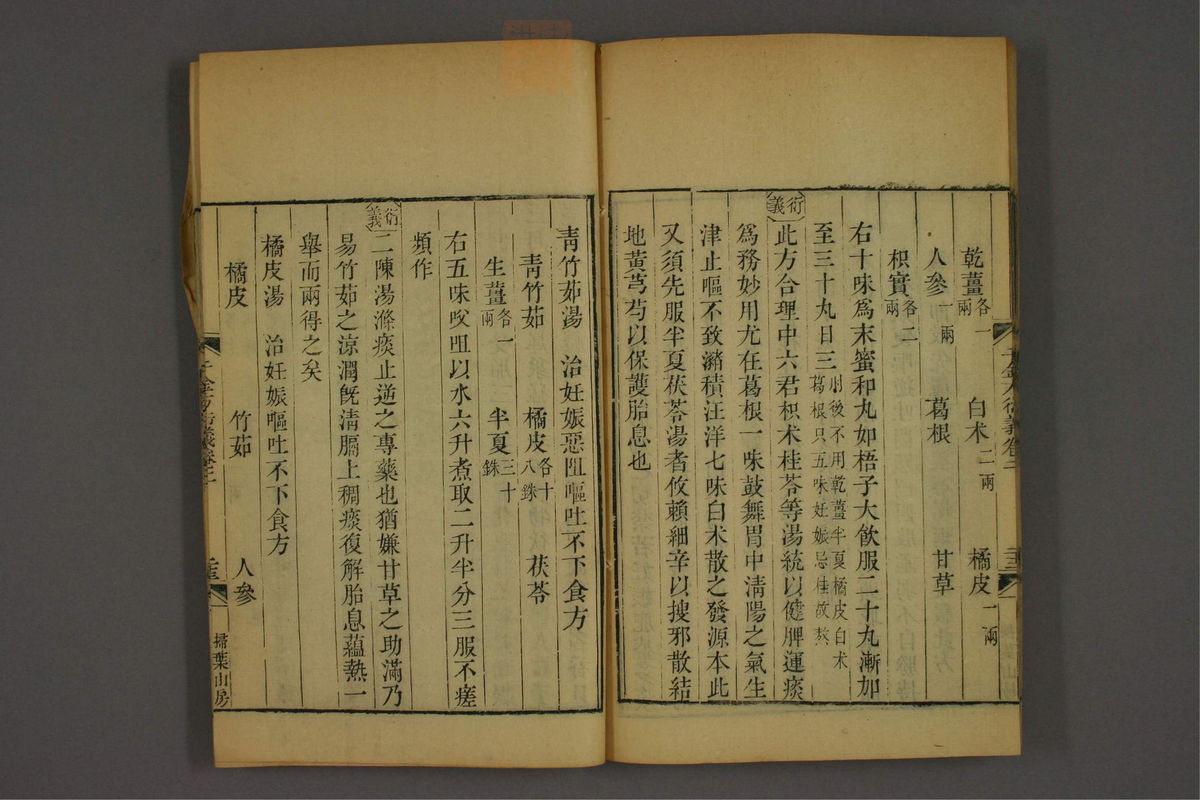 乾薑各一兩 白朮二兩 橘皮一兩
人參一兩 葛根 甘草
枳實各二兩
右十味爲末蜜和丸如梧子大飲服二十九漸加
至三十丸日三肘後不用乾薑半夏橘皮白朮葛根只五味妊娠忌桂故熬
衍義
此方合理中六君枳朮桂苓等湯統以健脾運痰
爲務妙用尤在葛根一味鼓舞胃中清陽之氣生
津止嘔不致瀦積汪洋七味白朮散之發源本此
又須先服半夏茯苓湯者攸賴細辛以搜邪散結
地黃芎芍以保護胎息也
千金方衍義卷二
青竹茹湯 治妊娠惡阻嘔吐不下食方
青竹茹 橘皮各十八銖 茯苓
生薑各一兩 半夏三十銖
右五味㕮咀以水六升煮取二升半分三服不瘥
頻作
衍義
二陳湯滌痰止逆之專藥也猶嫌甘草之助滿乃
易竹茹之涼潤旣清膈上稠痰復解胎息蘊熱一
舉而兩得之矣
橘皮湯 治妊娠嘔吐不下食方
橘皮 竹茹 人參
掃葉山房